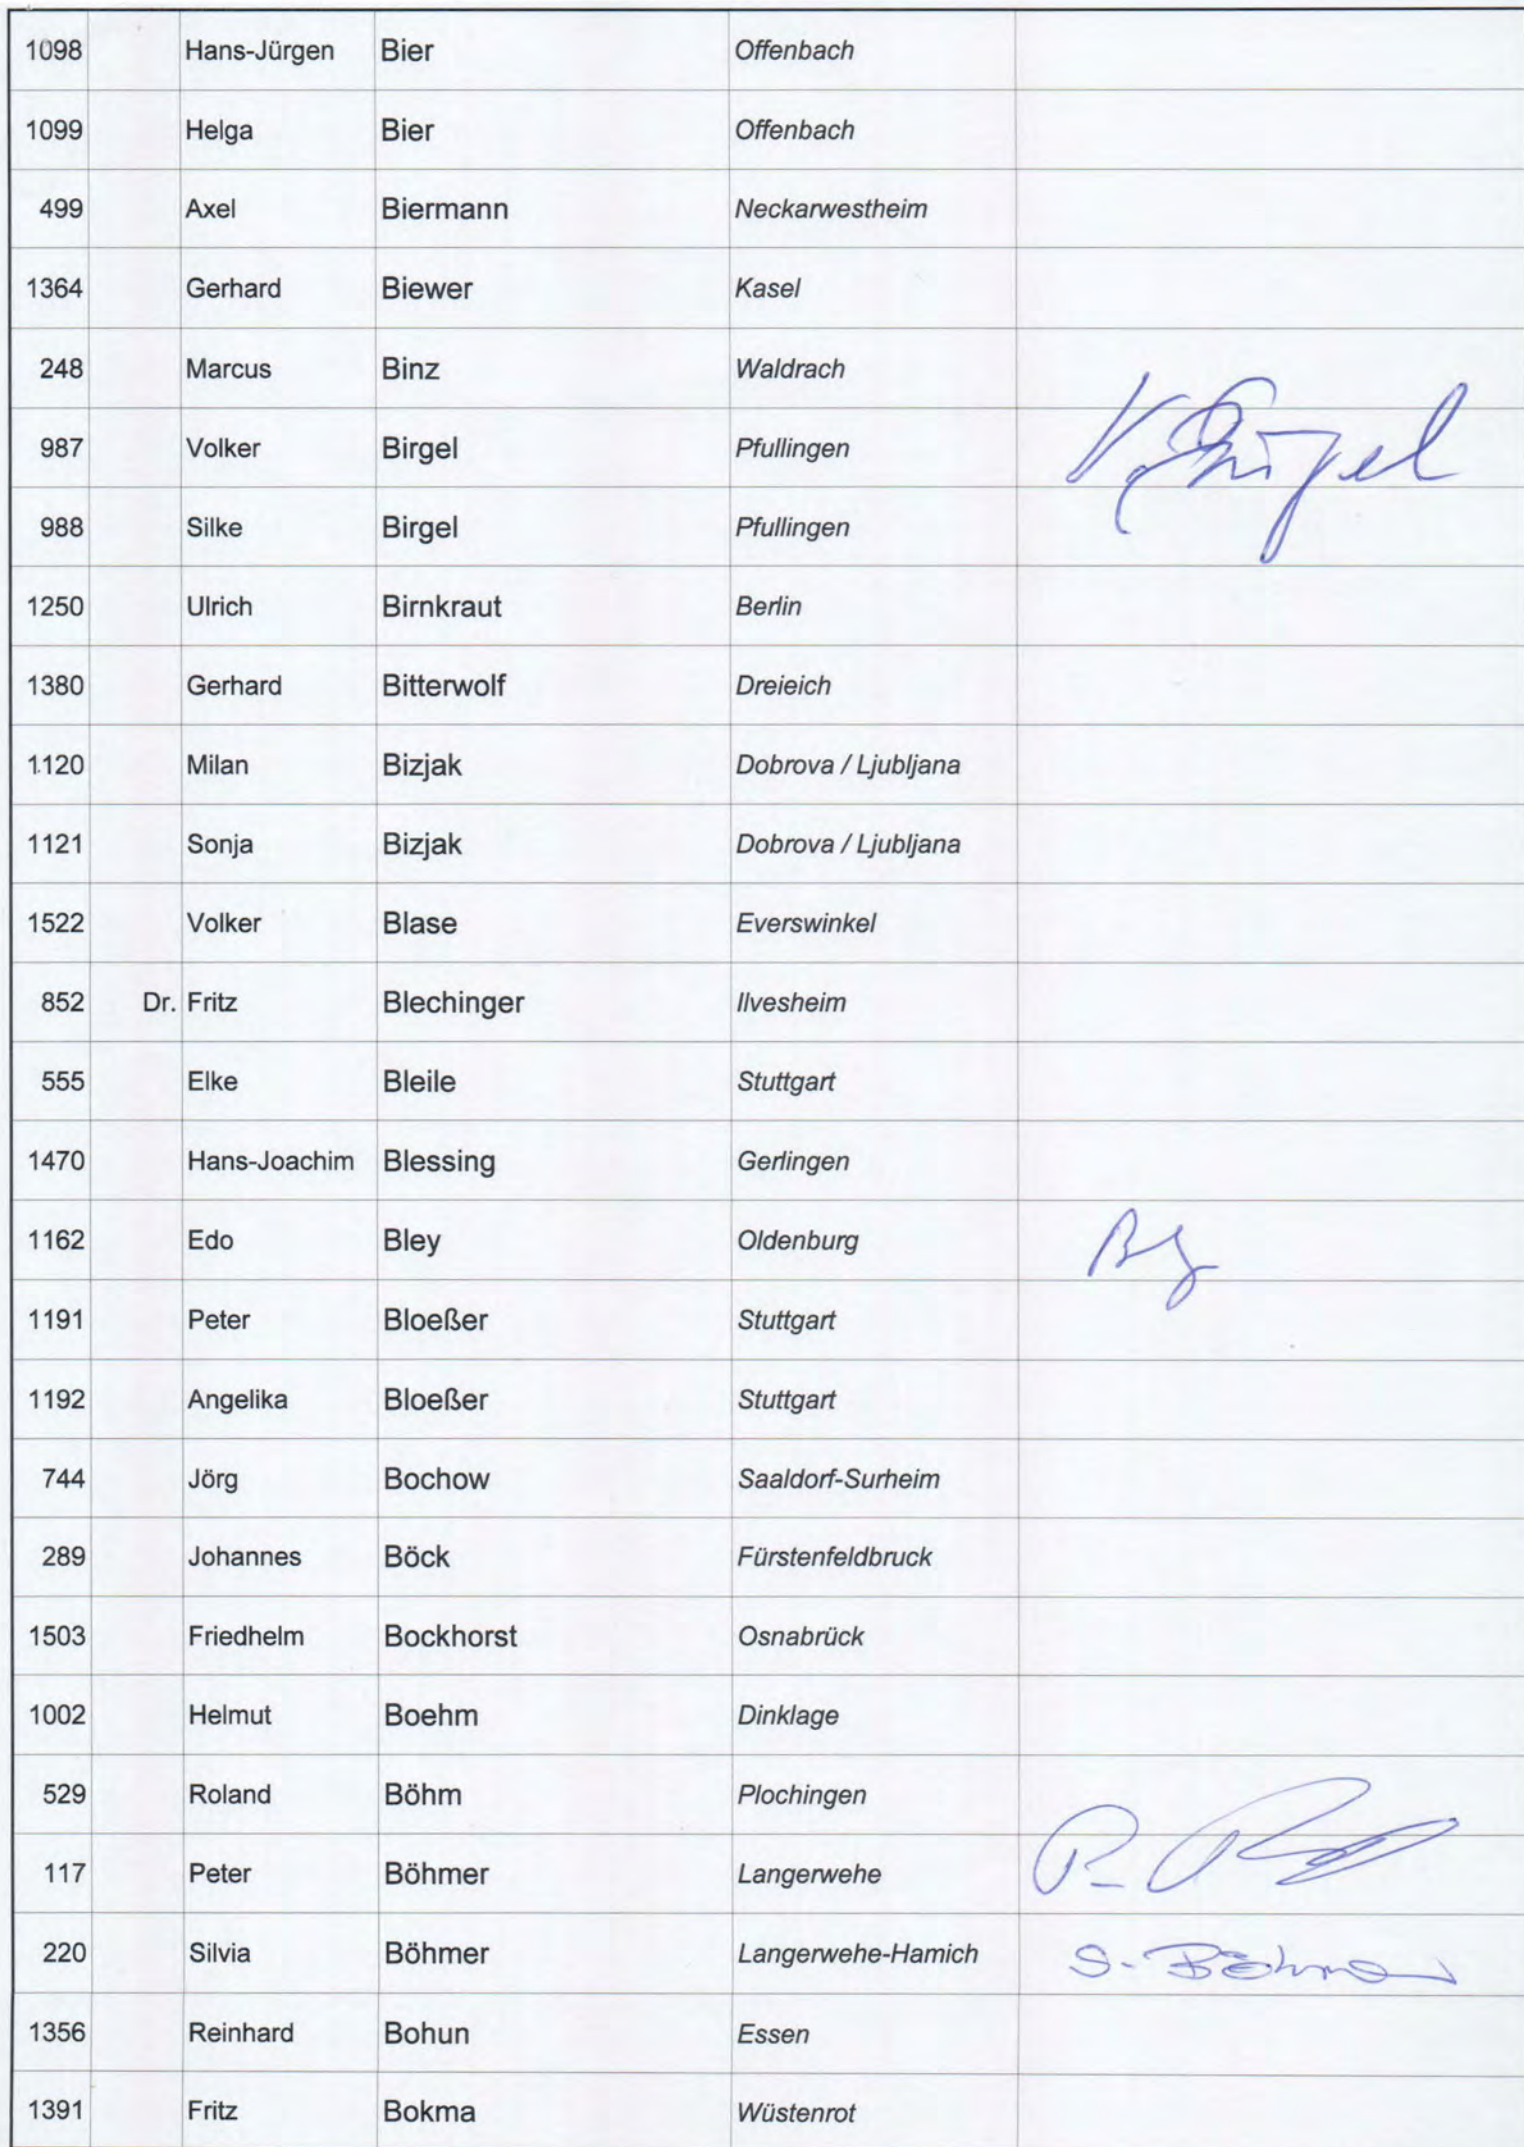 1098 Hans-Jürgen Bier Offenbach
1099 Helga Bier Offenbach
499 Axel Biermann Neckarwestheim
1364 Gerhard Biewer Kasel
248 Marcus Binz Waldrach
987 Volker Birgel Pfullingen V. Birgel
988 Silke Birgel Pfullingen
1250 Ulrich Birnkraut Berlin
1380 Gerhard Bitterwolf Dreieich
1120 Milan Bizjak Dobrova / Ljubljana
1121 Sonja Bizjak Dobrova / Ljubljana
1522 Volker Blase Everswinkel
852 Dr. Fritz Blechinger Ilvesheim
555 Elke Bleile Stuttgart
1470 Hans-Joachim Blessing Gerlingen
1162 Edo Bley Oldenburg
1191 Peter Bloeßer Stuttgart
1192 Angelika Bloeßer Stuttgart
744 Jörg Bochow Saaldorf-Surheim
289 Johannes Böck Fürstenfeldbruck
1503 Friedhelm Bockhorst Osnabrück
1002 Helmut Boehm Dinklage
529 Roland Böhm Plochingen
117 Peter Böhmer Langerwehe
220 Silvia Böhmer Langerwehe-Hamich S. Böhmer
1356 Reinhard Bohun Essen
1391 Fritz Bokma Wüstenrot